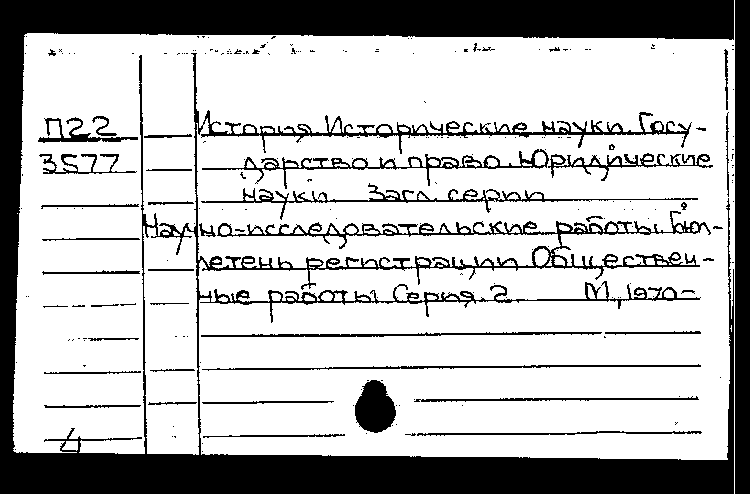 П22 История. Исторические науки. Госу-
3577 дарство и право. Юридические
науки. Загл. серии
Научно-исследовательские работы. Бюл-
летень регистрации Обществен-
ные работы Серия. 2. М., 1970-
4